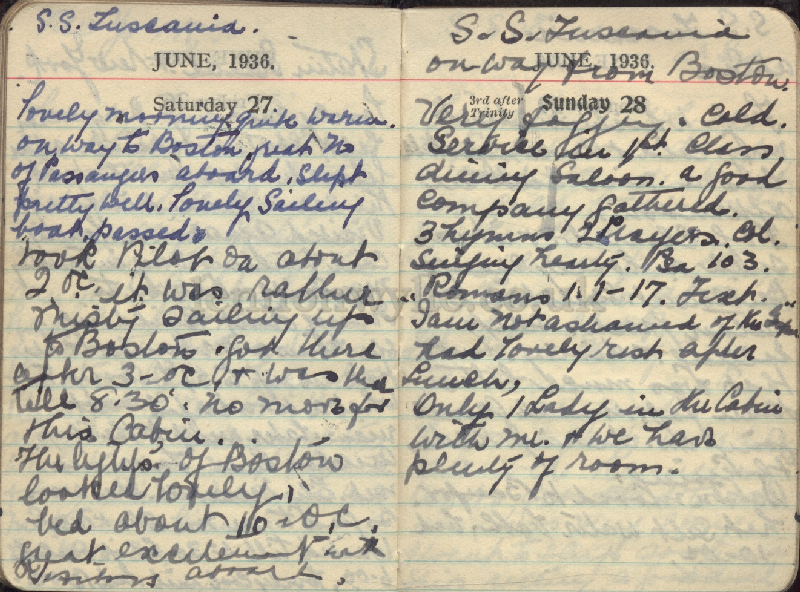 S.S. Tuscania.
JUNE, 1936.
Saturday 27.
lovely morning quite warm.
on way to Boston, great No
of Passangers aboard, Slept
pretty well. lovely Sailing
boat, passed
took Pilot on about
2 oc, it was rather
misty sailing up
to Boston. got there
after 3-oc, & was there
till 8.30. no more for
this Cabin.
The lights of Boston
looked lovely,
bed about 10-O,C,
great excitement with
Visitors aboard.
S.S. Tuscania
JUNE, 1936.
on way from Boston.
3rd after Trinity Sunday 28
Very foggy. Cold.
Service in 1st. Class
dining Saloon. a good
Company gathered.
3 hymns 2 Prayers. Col.
singing hearty. Psa 103.
Romans 1. 1-17. Text.
"I am not ashamed of the Gospel"
had lovely rest after
Lunch,
Only 1 Lady in the Cabin
with me. & we have
plenty of room.